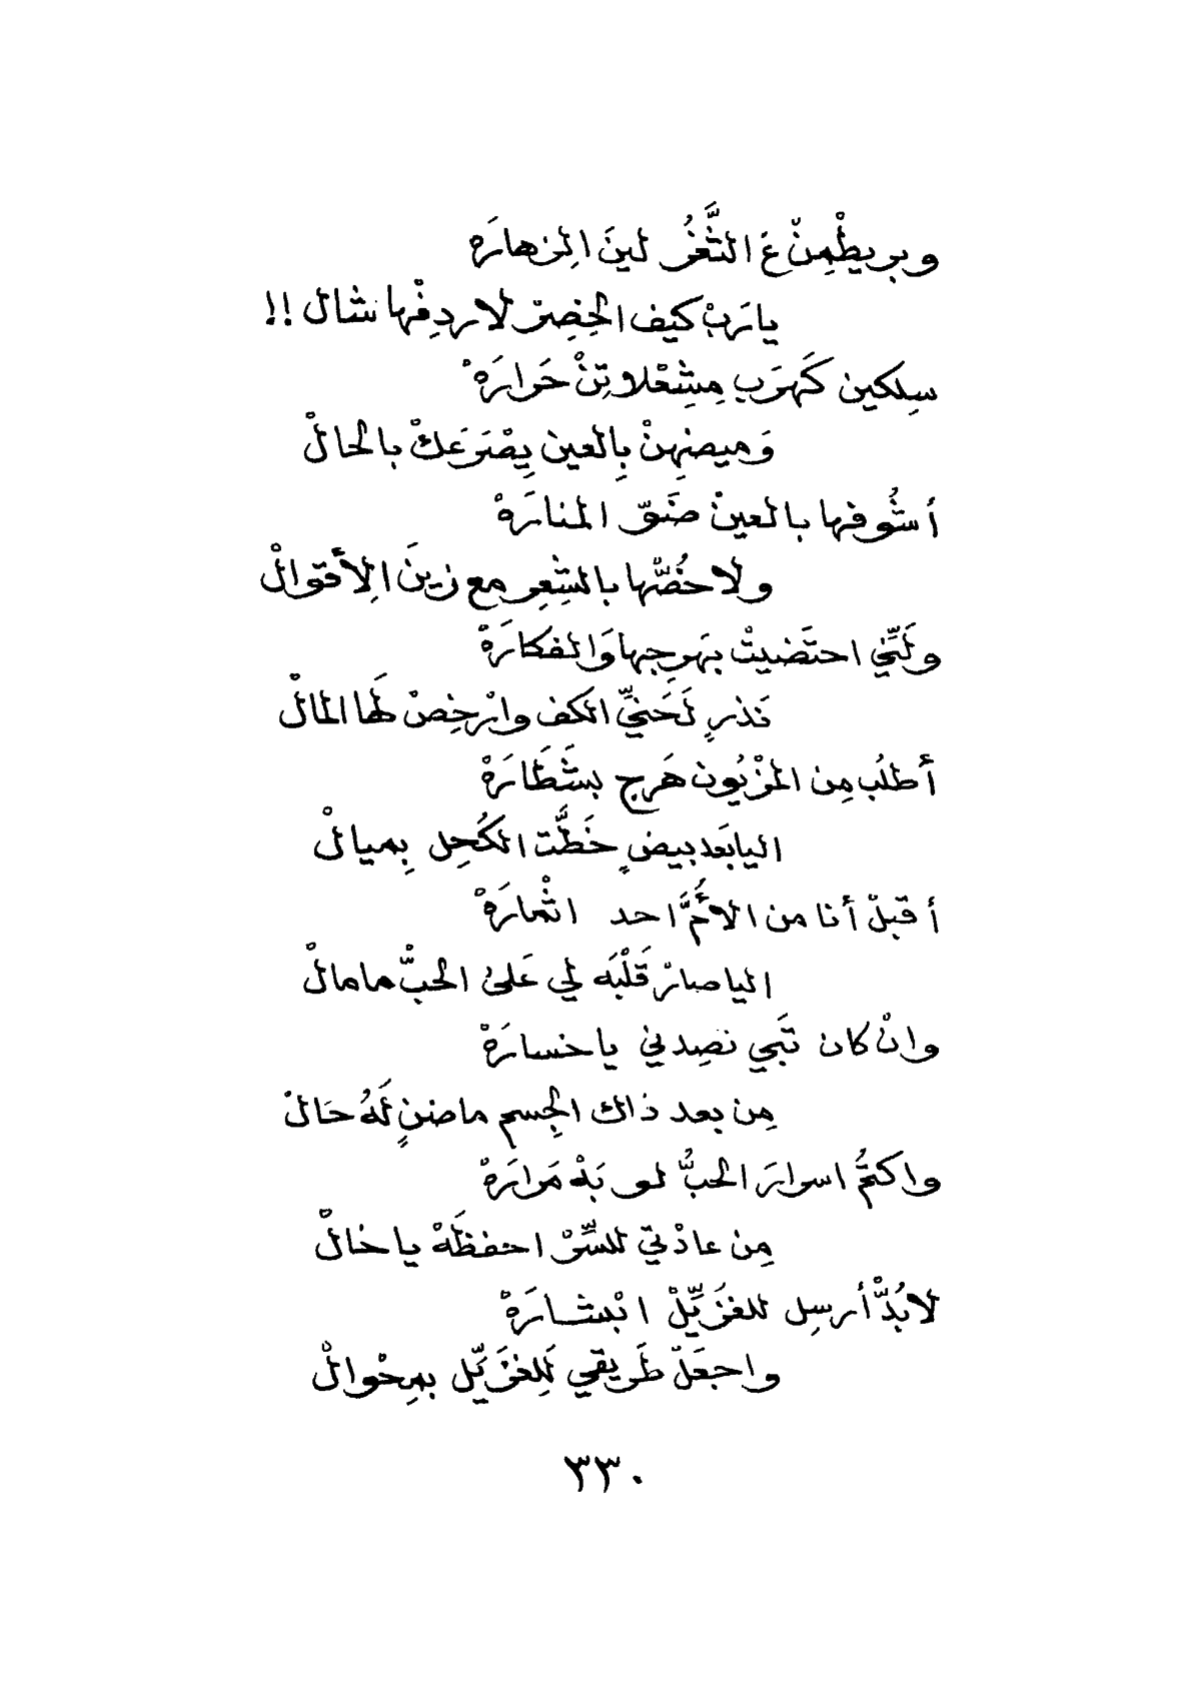 وبريطْمِنْ عَ الثَّغرُ لينَ الِزهارَهْ
يارَبْ كيف الخِصِرْ لاردِفْها شال !!
سِلكين كَهرَب مِشِعْلاتِنْ حَرارَهْ
وَميضهِنْ بِالعين يِصْرَعَكْ بالحالْ
أشُوفها بالعينْ ضَوّ المنارَهْ
ولاحُصّْها بالشِعِر مع زينَ الِأقوالْ
ولَنِّي احتَضيتْ بهَرِجها وَالمفكارَهْ
نَذرٍ لَحَنِّي الكف وارْخِصْ لَها المالْ
أطلُب مِن المزْيُون هَرجٍ بشَطَارَهْ
اليابَعد بيضٍ خَطَّت الكُحِل بِميالْ
أقبلْ أنا من الأمَّ احد اثْمارَهْ
الياصارْ قَلْبَه لي عَلىٰ الحبّْ مامالْ
وانْ كان تَبي تصِدني ياخسارَهْ
مِن بعد ذاك الجِسم ماضنٍ لَهُ حَالْ
واكتمُّ اسرارَ الحبُّ لو بَهْ مَرارَهْ
مِن عادْتي للسِّرْ احفظَهْ ياخالْ
لابُدّْ أرسِل للغزَيِّلْ ابْشارَهْ
واجعَلْ طَريقي لَلِغزَيِّل بمِحْوالْ
٣٣٠